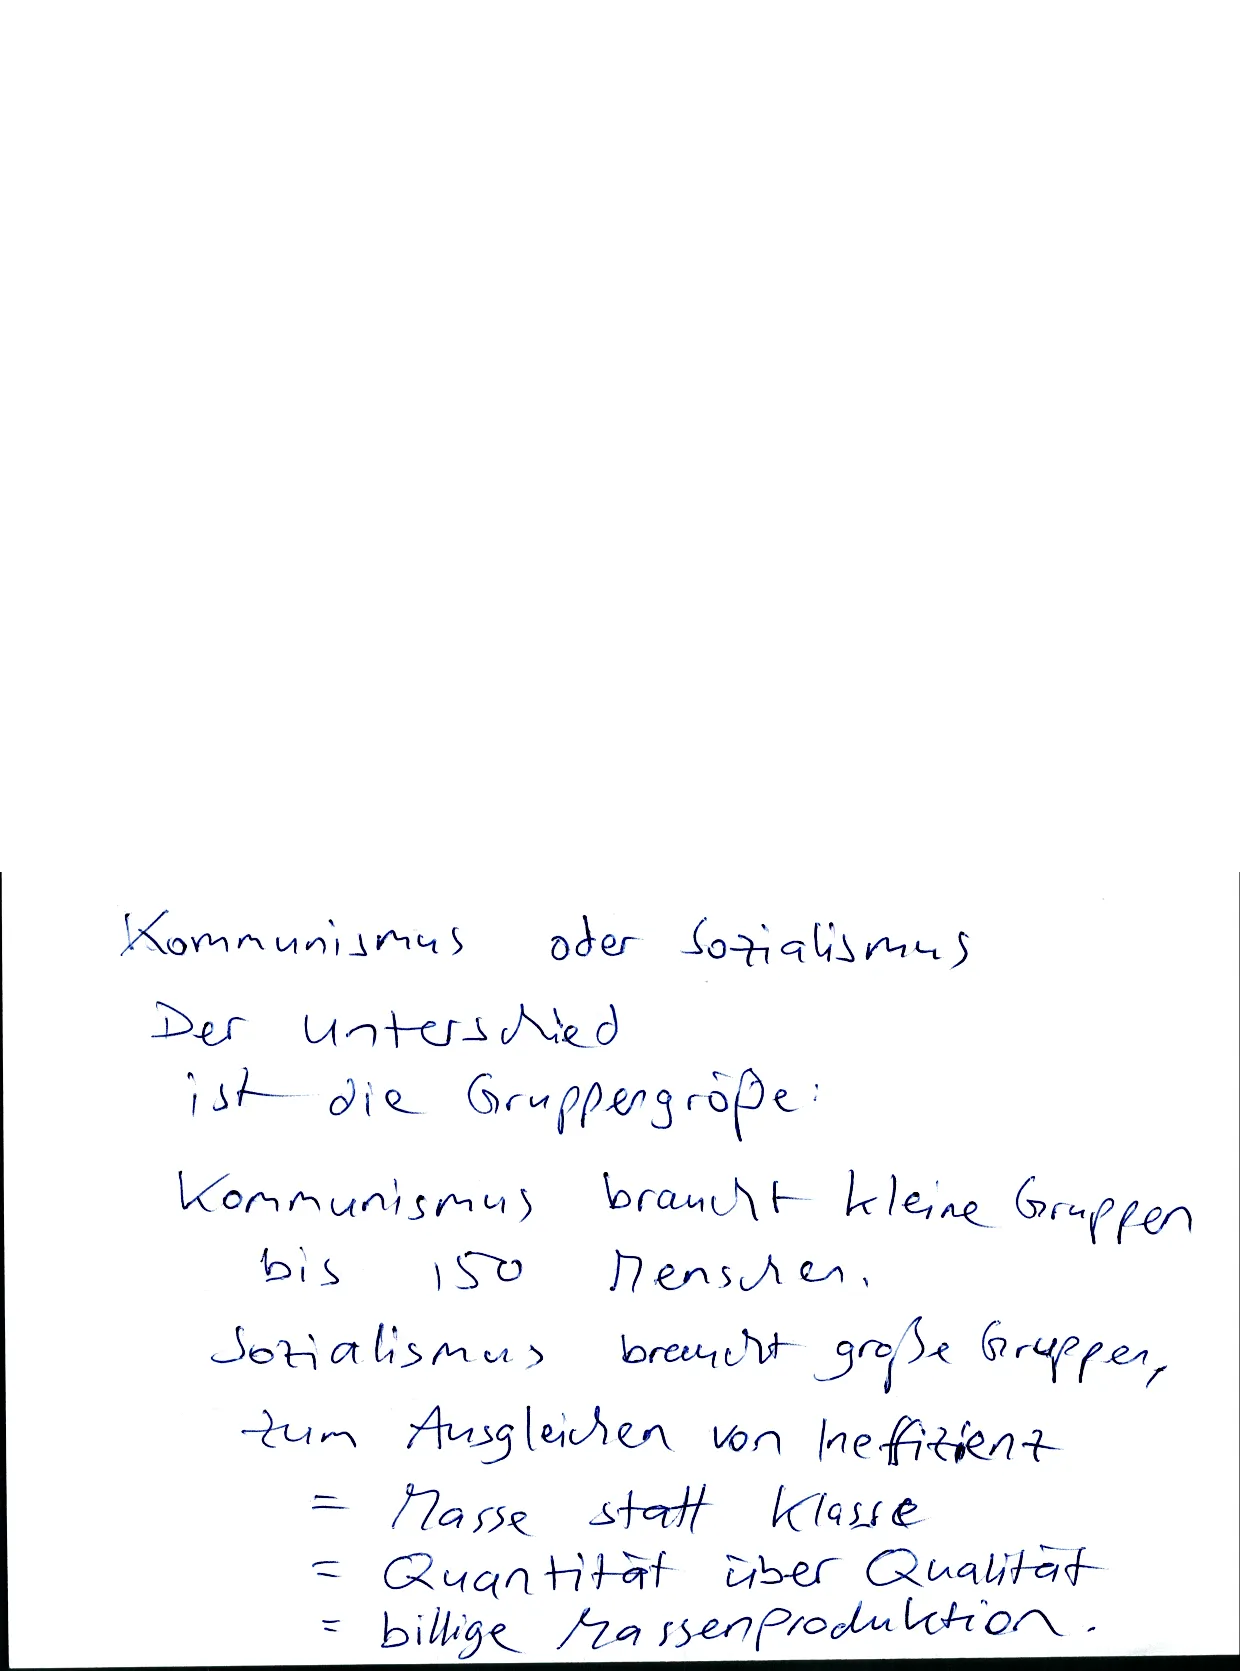 Kommunismus oder Sozialismus
Der Unterschied
ist die Gruppengröße:
Kommunismus braucht kleine Gruppen
bis 150 Menschen.
Sozialismus braucht große Gruppen,
zum Ausgleichen von Ineffizienz
= Masse statt Klasse
= Quantität über Qualität
= billige Massenproduktion.